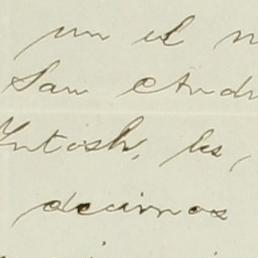 un el
San Andr
Intosh, les,
decimos